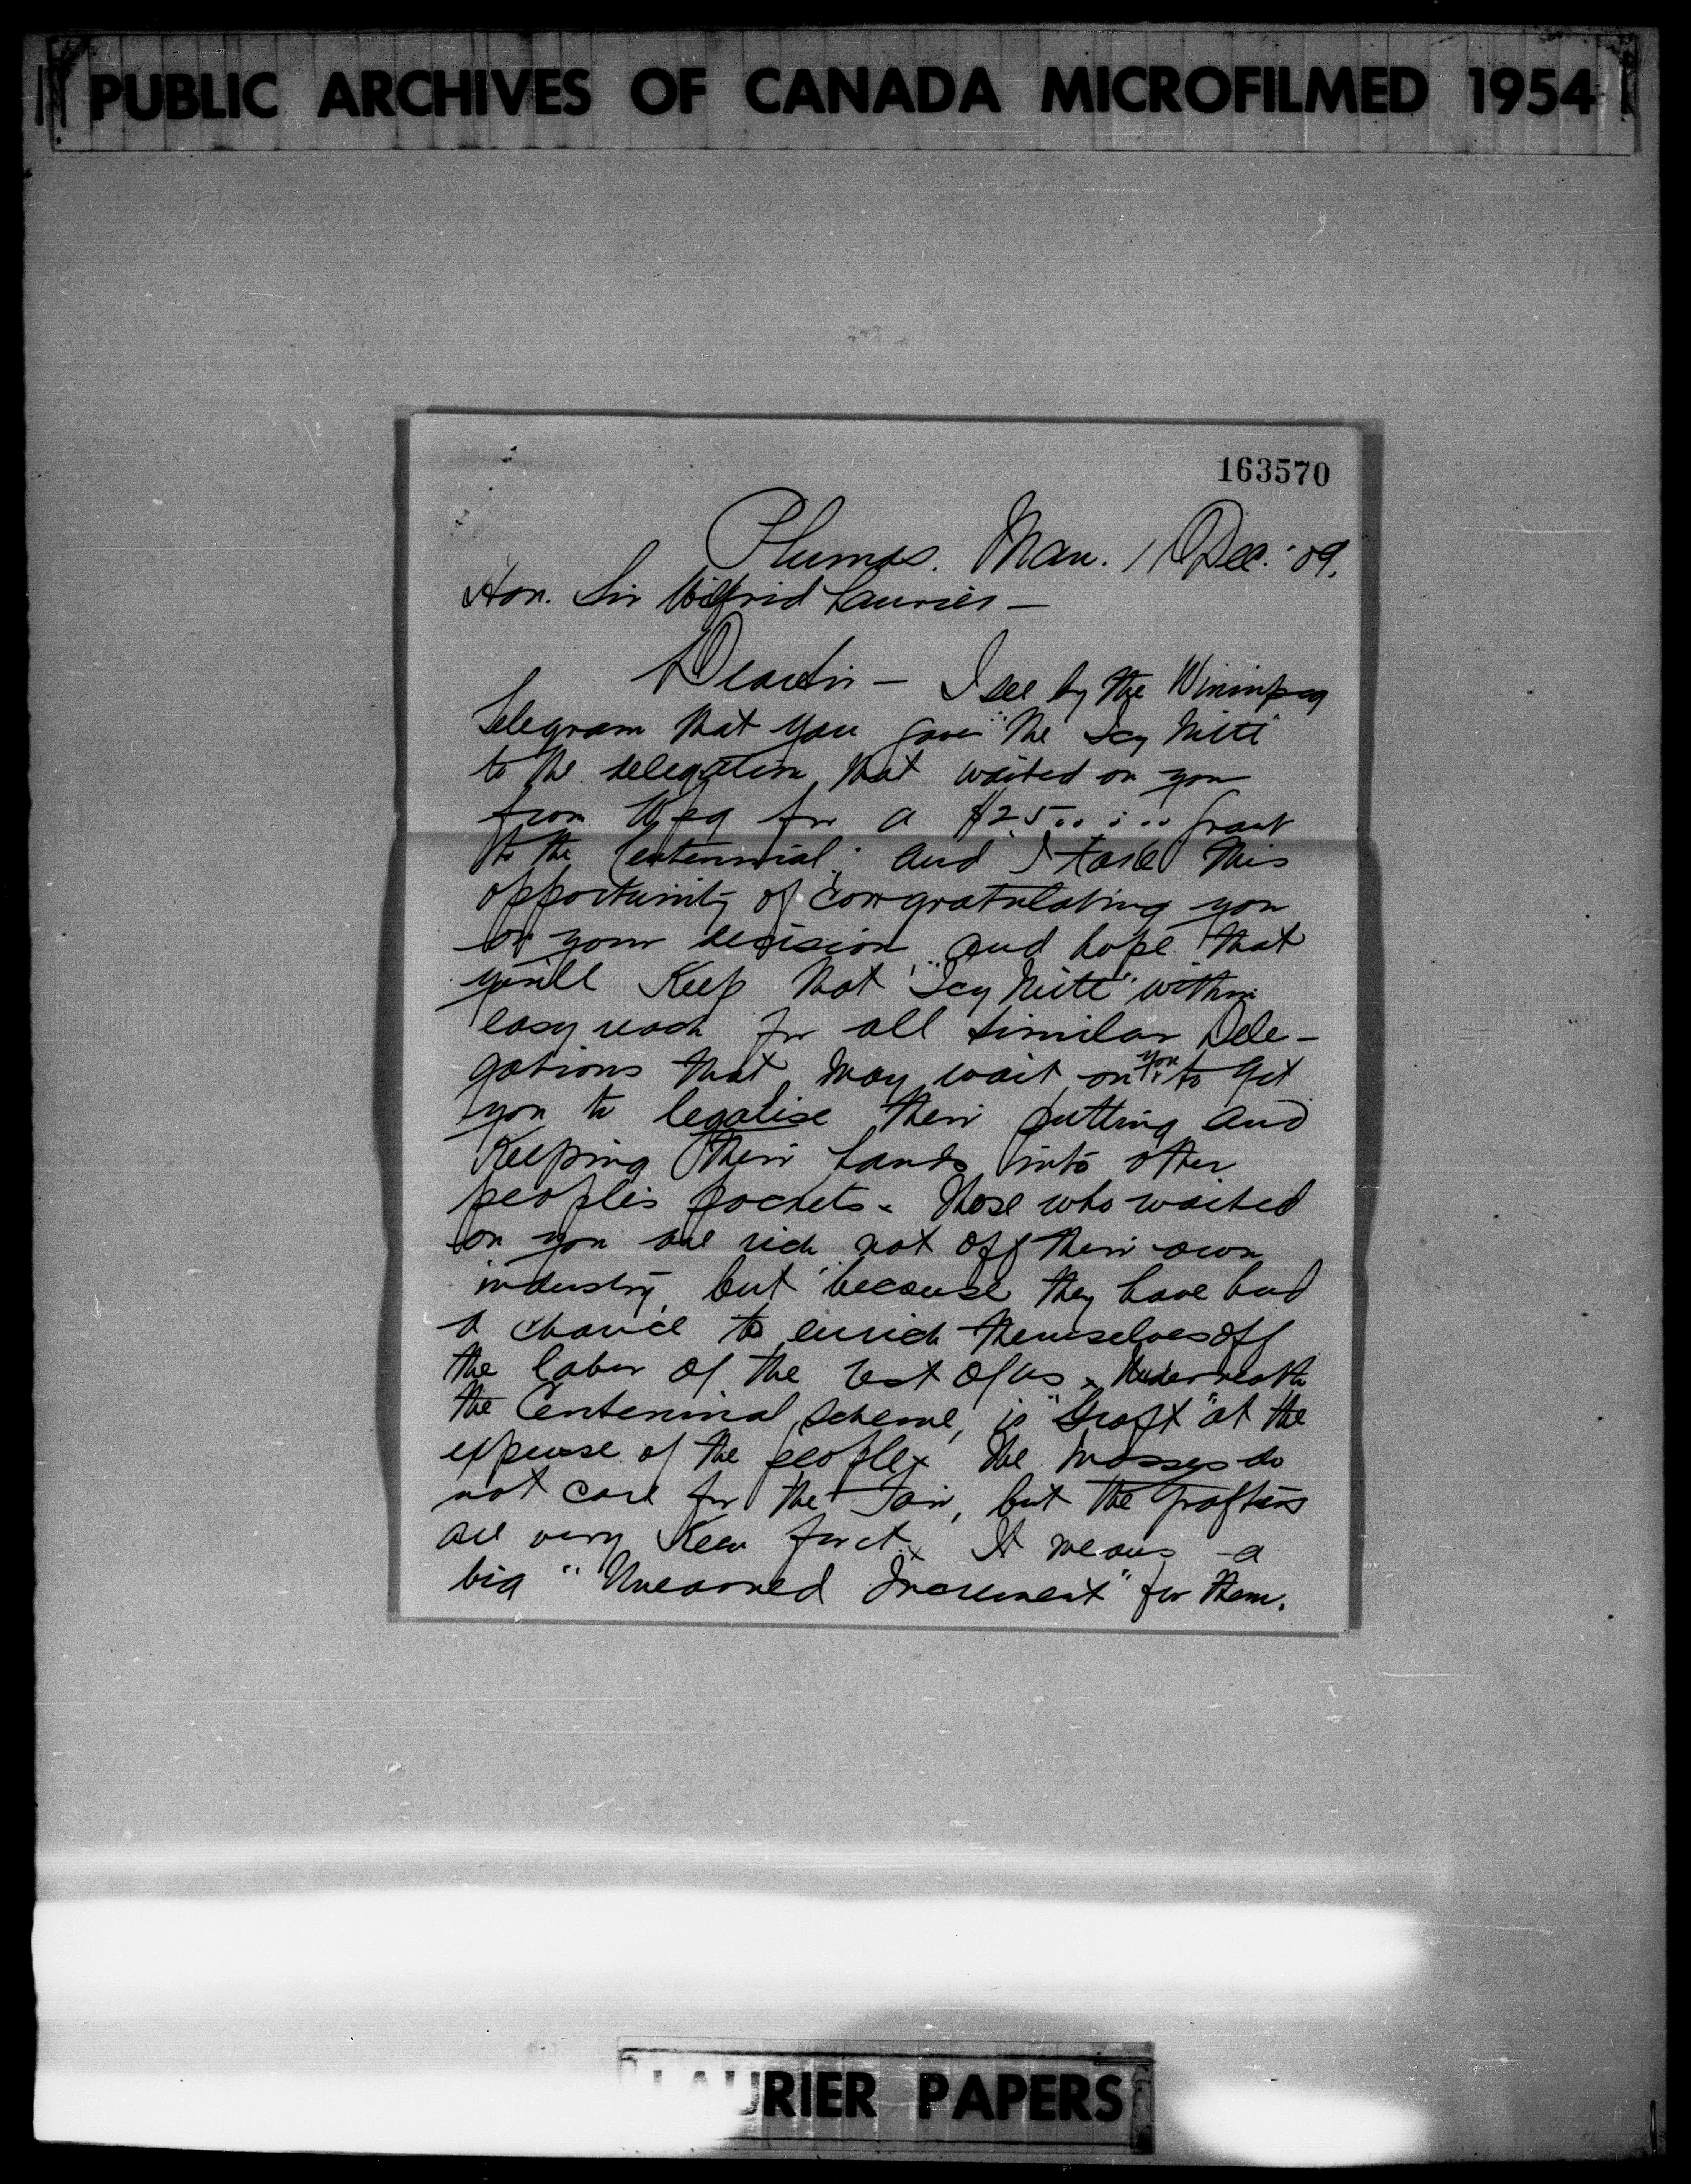 PUBLIC ARCHIVES OF CANADA MICROFILMED 1954
163570
Plumas. Man. 10 Dec. '09.
Hon. Sir Wilfrid Laurier —
Dear Sir — I see by the Winnipeg
Telegram that you gave "the Icy Mitt"
to the delegation that waited on you
from Wpg for a $2500000 grant
to the Centennial; and I take this
opportunity of congratulating you
on your decision and hope that
you'll keep that "Icy Mitt" within
easy reach for all similar Dele-
gations that may wait on you to get
you to legalise their putting and
keeping their hands into other
people's pockets. Those who waited
on you are rich not off their own
industry, but because they have had
a chance to enrich themselves off
the labor of the rest of us. Underneath
the Centennial scheme, is "Graft" at the
expense of the people. The masses do
not care for the Fair, but the grafters
are very keen for it. It means a
big "Unearned Increment" for them.
LAURIER PAPERS